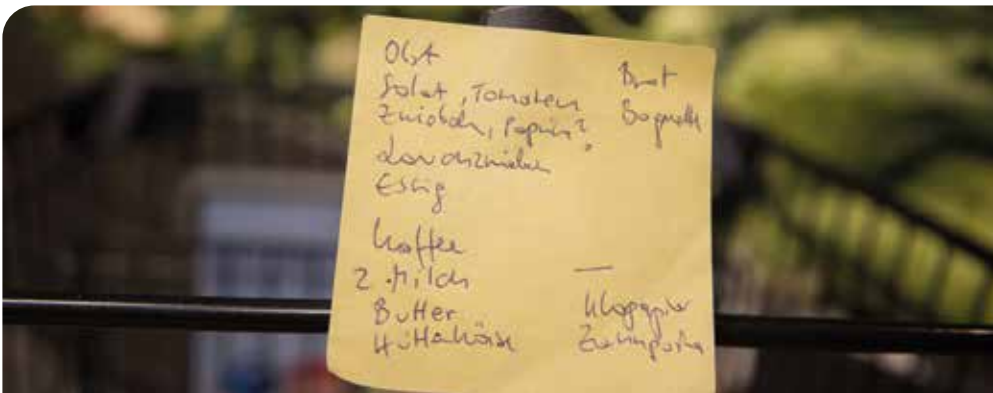 Obst
Salat, Tomaten
Zwiebeln, Paprika?
Lauchzwiebeln
Essig
Kaffee
2 Milch
Butter
Hüttenkäse
Brot
Baguette
—
Klopapier